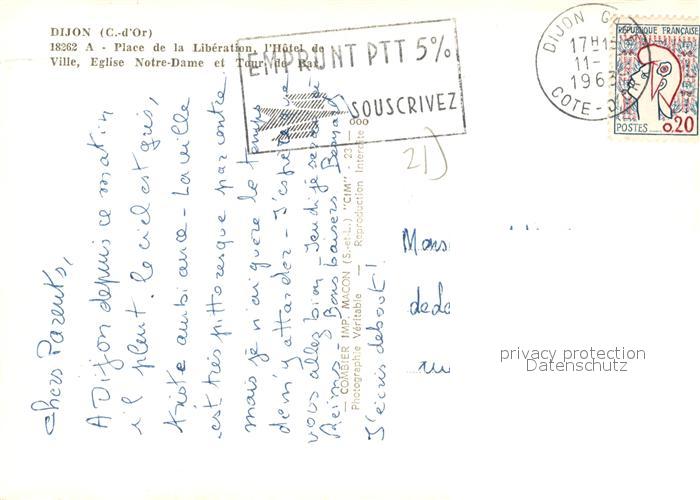 DIJON (C.-d'Or)
18262 A - Place de la Libération, l'Hôtel de
Ville, Eglise Notre-Dame et Tour de Bar.
EMPRUNT PTT 5%
SOUSCRIVEZ
DIJON GARE
17H15
11-
1963
COTE-D'OR
REPUBLIQUE FRANÇAISE
POSTES
0,20
21)
Chers Parents,
A Dijon depuis ce matin
il pleut. le ciel est gris,
triste ambiance - La ville
est très pittoresque par contre
mais je n'ai guère le temps
de m'y attarder - J'espère que
vous allez bien - Jeudi je serai à
Reims - Bons baisers
J'écris debout!
— COMBIER IMP. MACON (S.-et-L.) "CIM" - 23 — 000
Photographie Véritable — Reproduction Interdite
Mons
de La
privacy protection
Datenschutz